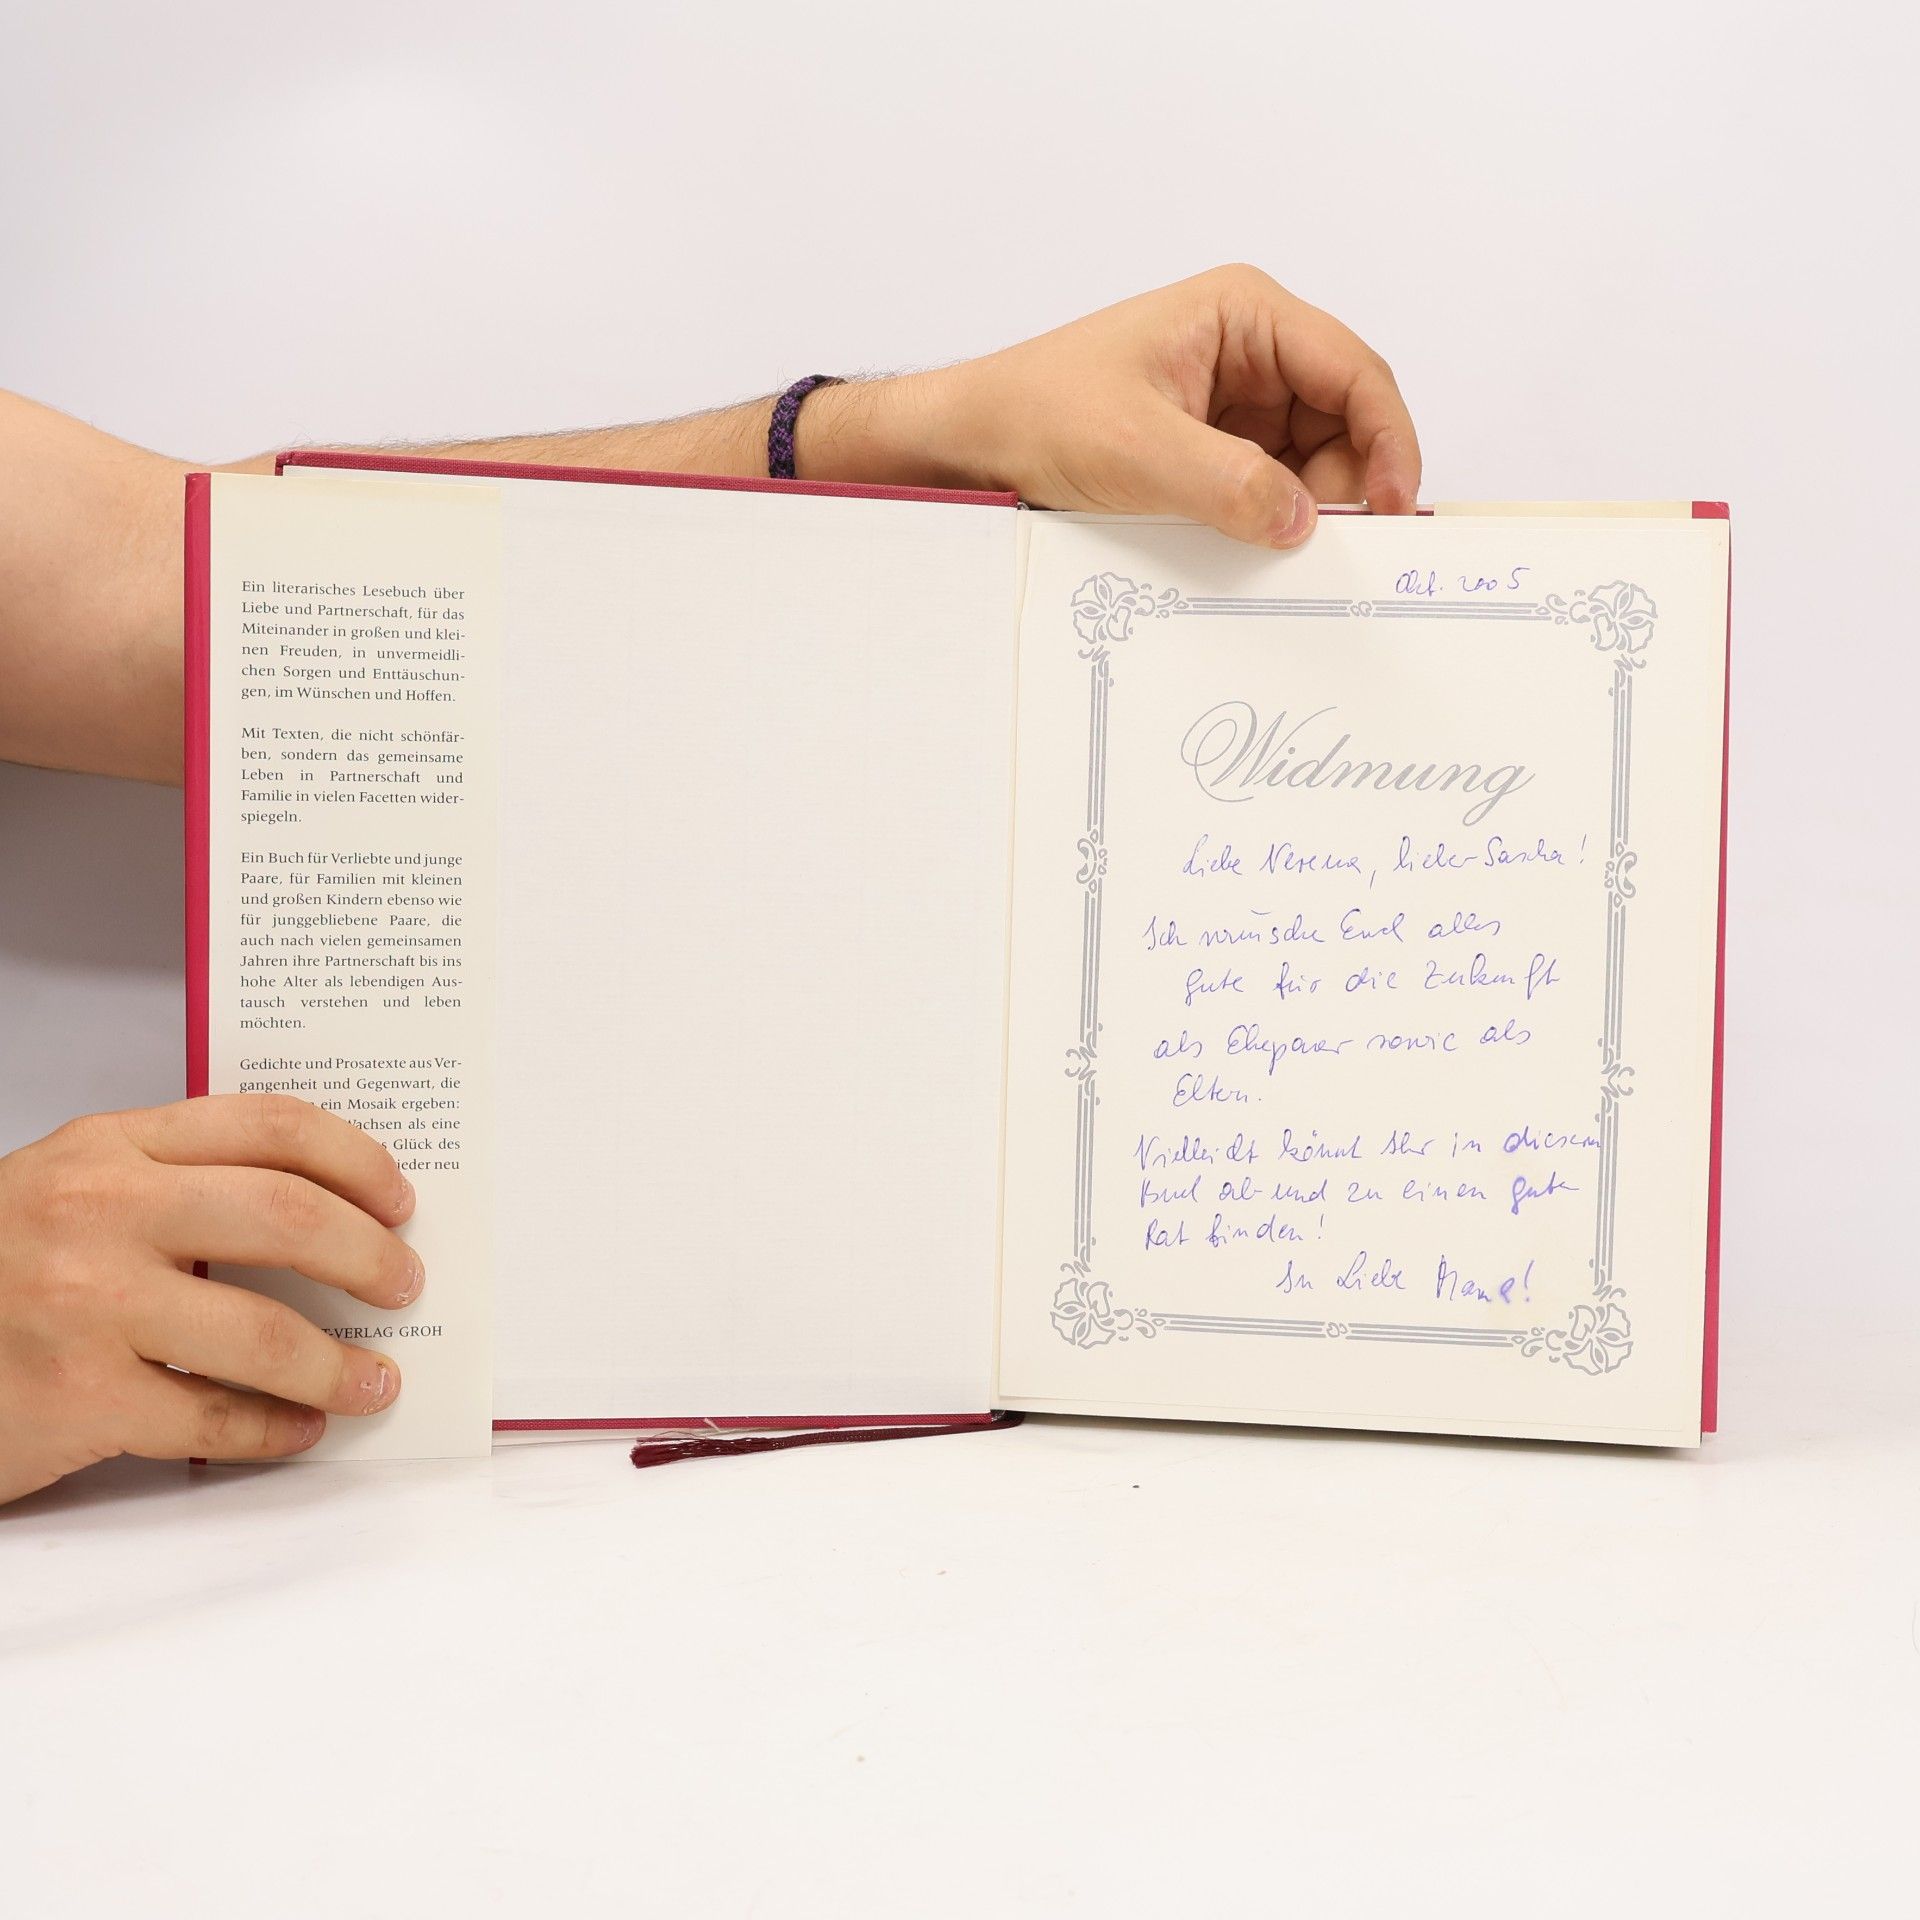 Ein literarisches Lesebuch über
Liebe und Partnerschaft, für das
Miteinander in großen und klei-
nen Freuden, in unvermeidli-
chen Sorgen und Enttäuschun-
gen, im Wünschen und Hoffen.
Mit Texten, die nicht schönfär-
ben, sondern das gemeinsame
Leben in Partnerschaft und
Familie in vielen Facetten wider-
spiegeln.
Ein Buch für Verliebte und junge
Paare, für Familien mit kleinen
und großen Kindern ebenso wie
für junggebliebene Paare, die
auch nach vielen gemeinsamen
Jahren ihre Partnerschaft bis ins
hohe Alter als lebendigen Aus-
tausch verstehen und leben
möchten.
Gedichte und Prosatexte aus Ver-
gangenheit und Gegenwart, die
ein Mosaik ergeben:
Wachsen als eine
Glück des
neu
T-VERLAG GROH
Okt. 2005
Widmung
Liebe Verena, lieber Sascha!
Ich wünsche Euch alles
gute für die Zukunft
als Ehepaar sowie als
Eltern.
Vielleicht könnt Ihr in diesem
Buch ab und zu einen guten
Rat finden!
In Liebe Mama!